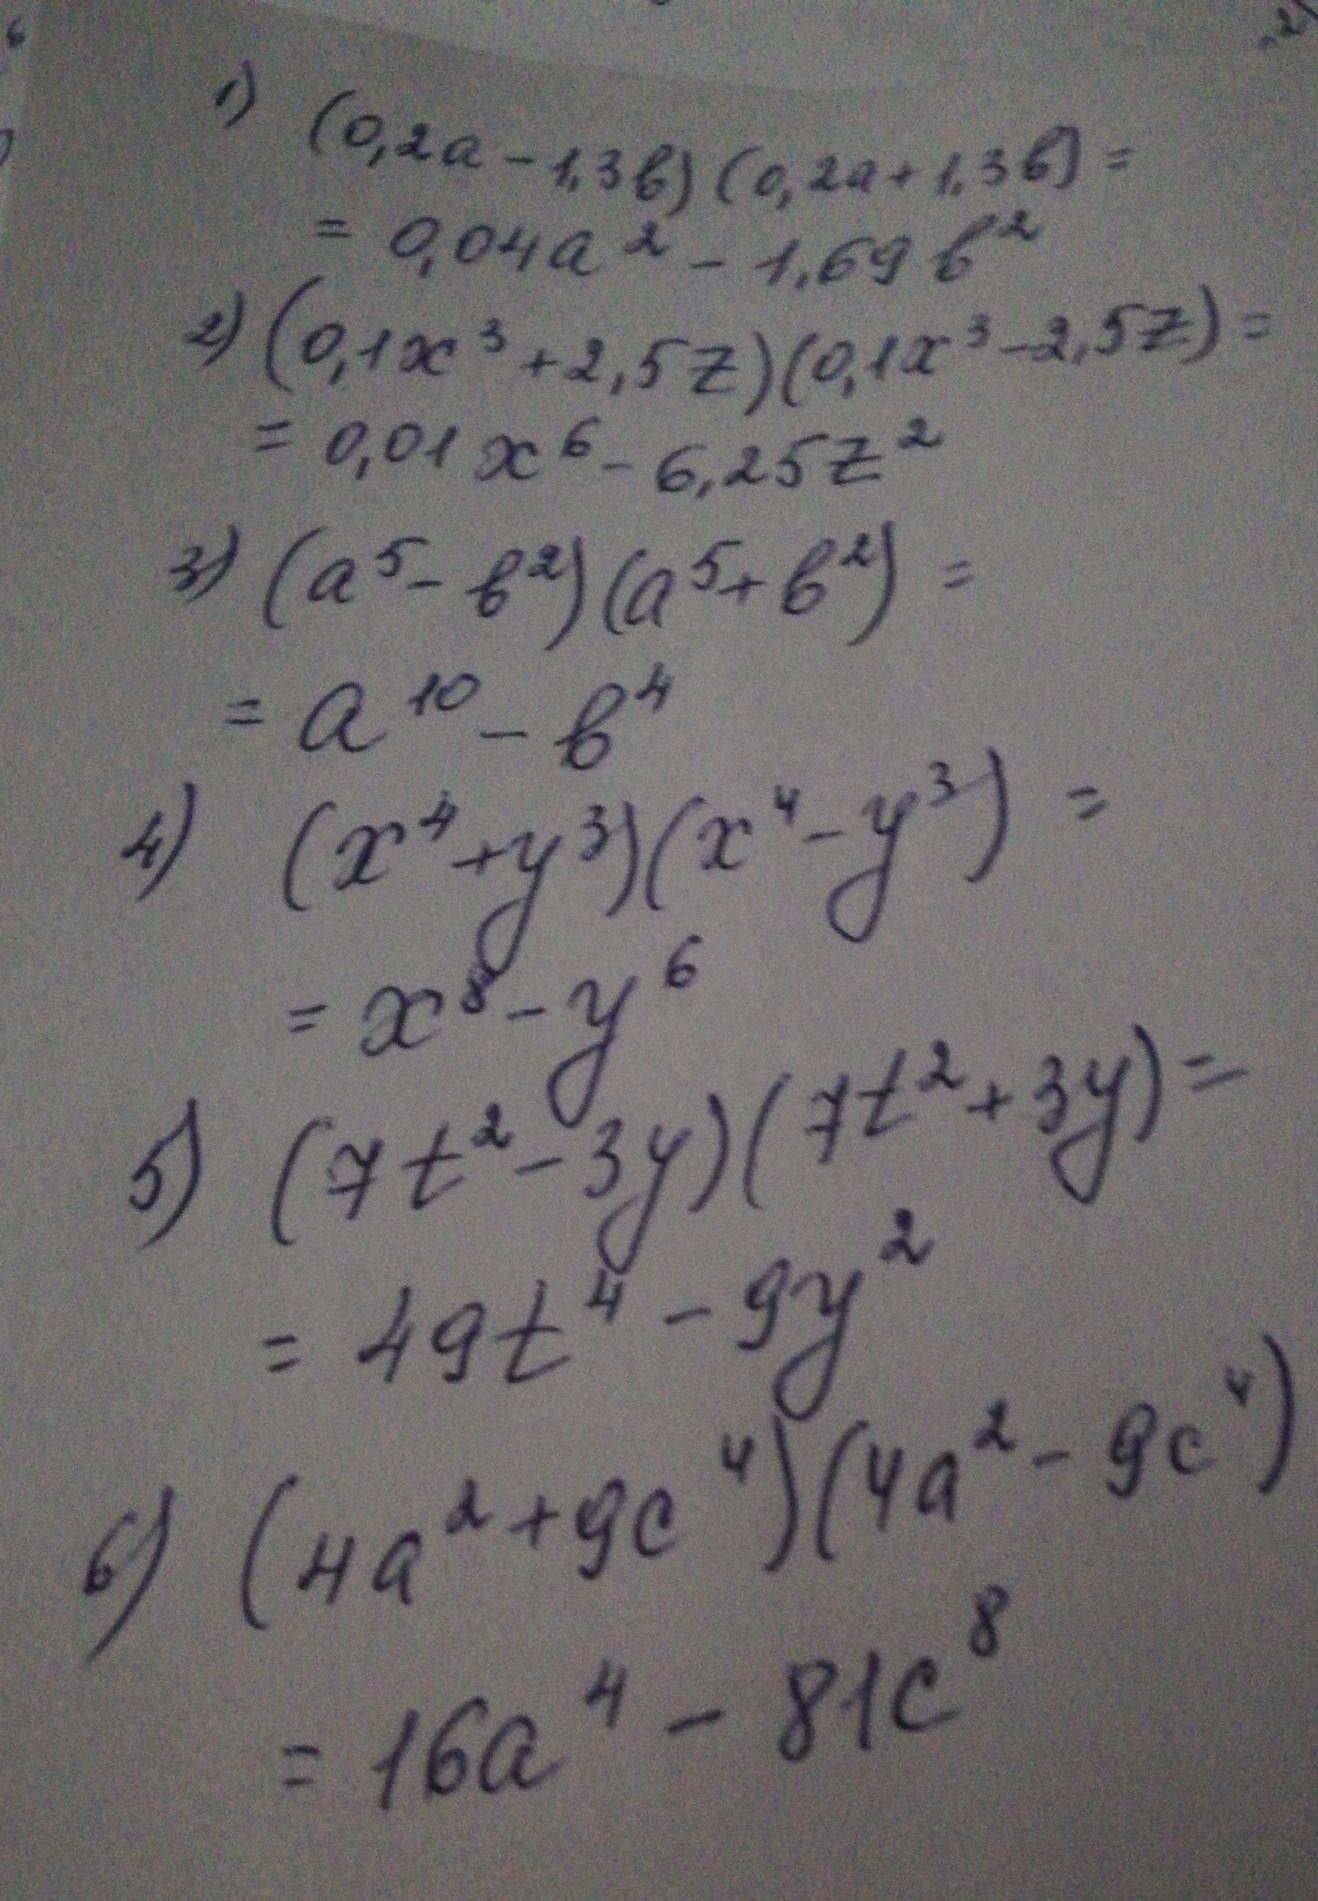 1) (0,2a - 1,3b) (0,2a + 1,3b) =
= 0,04a² - 1,69b²
2) (0,1x³ + 2,5z)(0,1x³ - 2,5z) =
= 0,01x⁶ - 6,25z²
3) (a⁵ - b²)(a⁵ + b²) =
= a¹⁰ - b⁴
4) (x⁴ + y³)(x⁴ - y³) =
= x⁸ - y⁶
5) (7t² - 3y)(7t² + 3y) =
= 49t⁴ - 9y²
6) (4a² + 9c⁴)(4a² - 9c⁴)
= 16a⁴ - 81c⁸